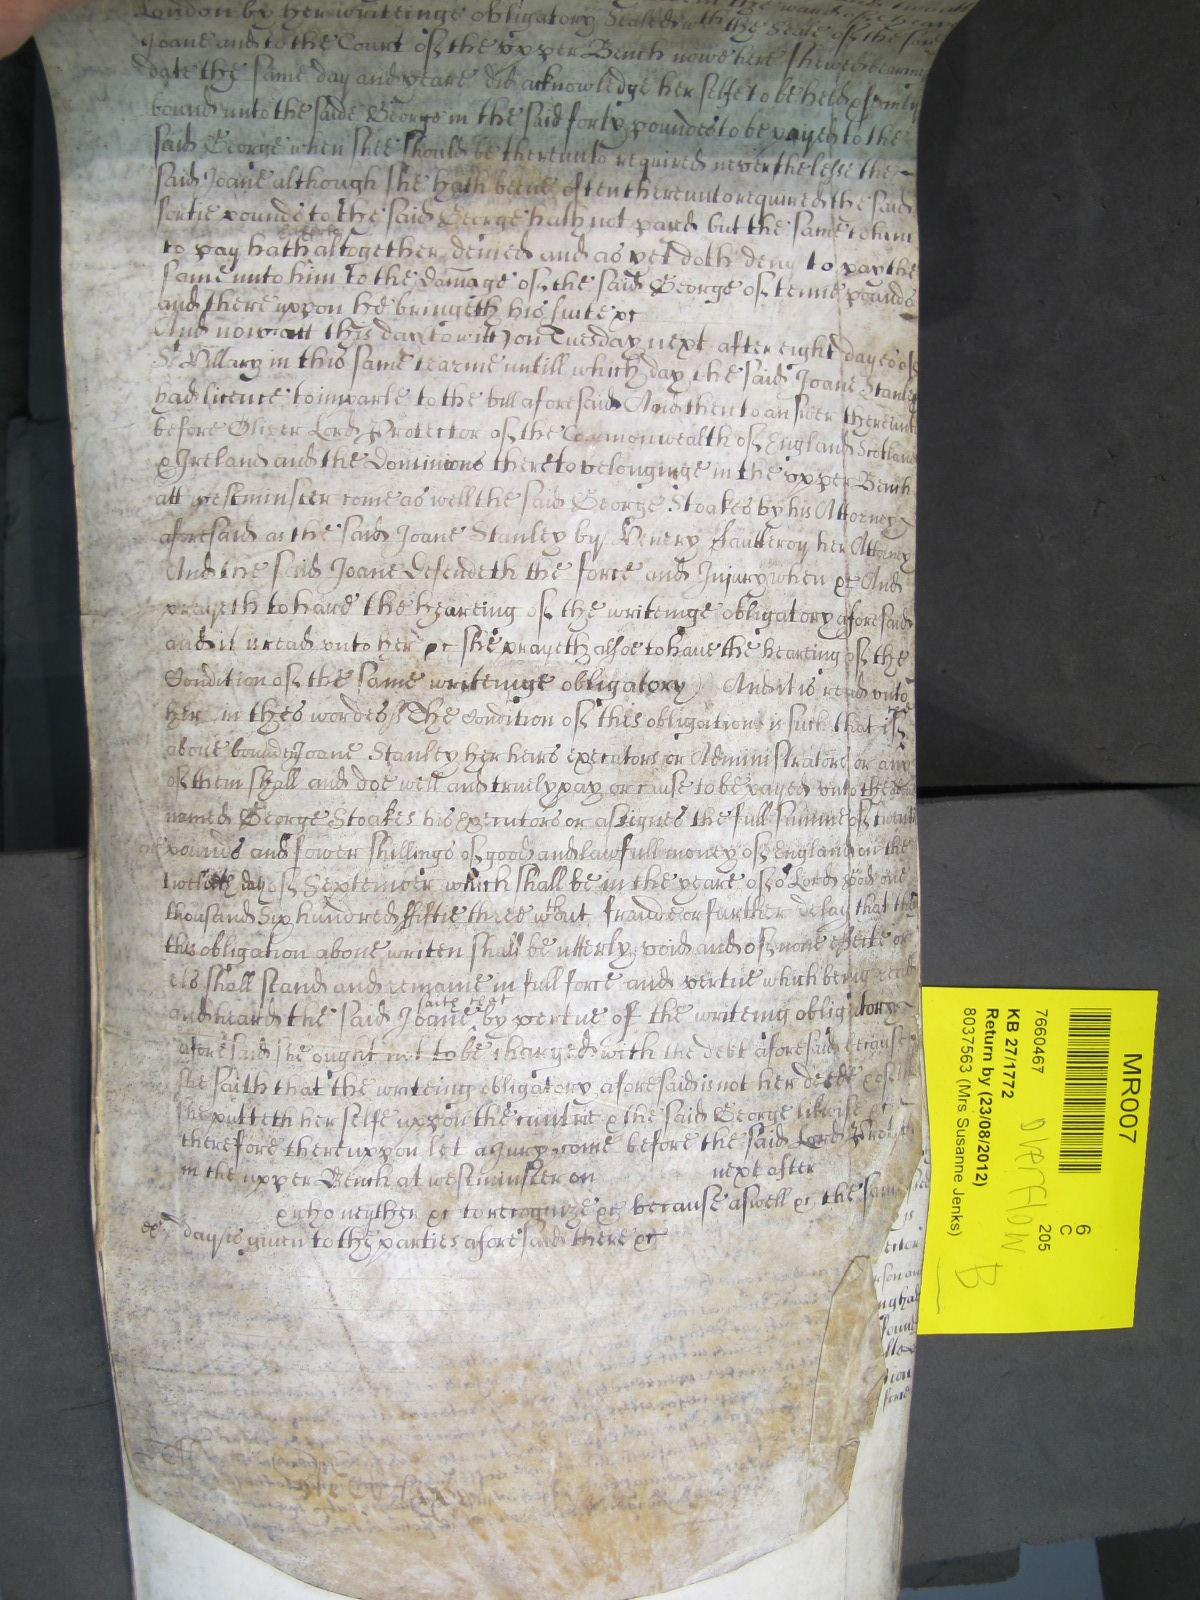 London by her writeinge obligatory Sealed with the Seale of the said
Joane and to the Court of the upper Bench nowe here shewed bearing
date the same day and yeare did acknowledge her selfe to be held & firmly
bound unto the saide George in the said forty poundes to be payed to the
said George when shee should be thereunto required neverthelesse the
said Joane although she hath beene often thereunto required the said
fortie pounds to the said George hath not paied but the same to him
to pay hath altogether denied and as yet doth deny to pay the
same unto him To the damage of the said George of tenne pounds
and there uppon he bringeth his suite &c
And now att this day (to witt) on Tuesday next after eight dayes of
St Hillary in this same tearme untill which day the said Joane Stanley
had licence to imparle to the bill aforesaid And then to answer thereunto
before Oliver Lord Protector of the Commonwealth of England Scotland
& Ireland and the Dominions thereto belonginge in the upper Bench
att westminster come as well the said George Stoakes by his Attorney
aforesaid as the said Joane Stanley by Henery Fautleroy her Attorney
And the said Joane defendeth the force and Injury when &c And
prayeth to have the heareing of the writeinge obligatory aforesaid
and it is read unto her &c she prayeth alsoe to have the heareing of the
Condition of the same writeinge obligatory And it is read unto
her in thes wordes The Condition of this obligation is such that if
above bounden Joane Stanley her heirs executors or Administrators or any
of them shall and doe well and truely pay or cause to be payed unto the
named George Stoakes his Executors or assignes the full summe of
pounds and fower shillings of good and lawfull money of England on the
day of September which shall be in the yeare of or Lord god one
thousand Six hundred fiftie three wthout fraude or further delay that then
this obligation above writen shall be utterly void and of none effecte or
els shall stand and remaine in full force and vertue which being read
and heard the said Joane saith that by vertue of the writeing obligatory
aforesaid she ought not to be charged with the debt aforesaid because
she saith that the writeing obligatory aforesaid is not her deede &
she putteth her selfe uppon the cuntrie & the said George likwise &c
therefore thereuppon let a Jury come before the said Lord Protector
in the upper Bench at westminster on next after
& who neyther &c to recognize &c because aswell &c the same
day is given to the parties aforesaid there &c
MR007
6
C
205
7660467
KB 27/1772
Return by (23/08/2012)
8037563 (Mrs Susanne Jenks)
OVERFLOW
B